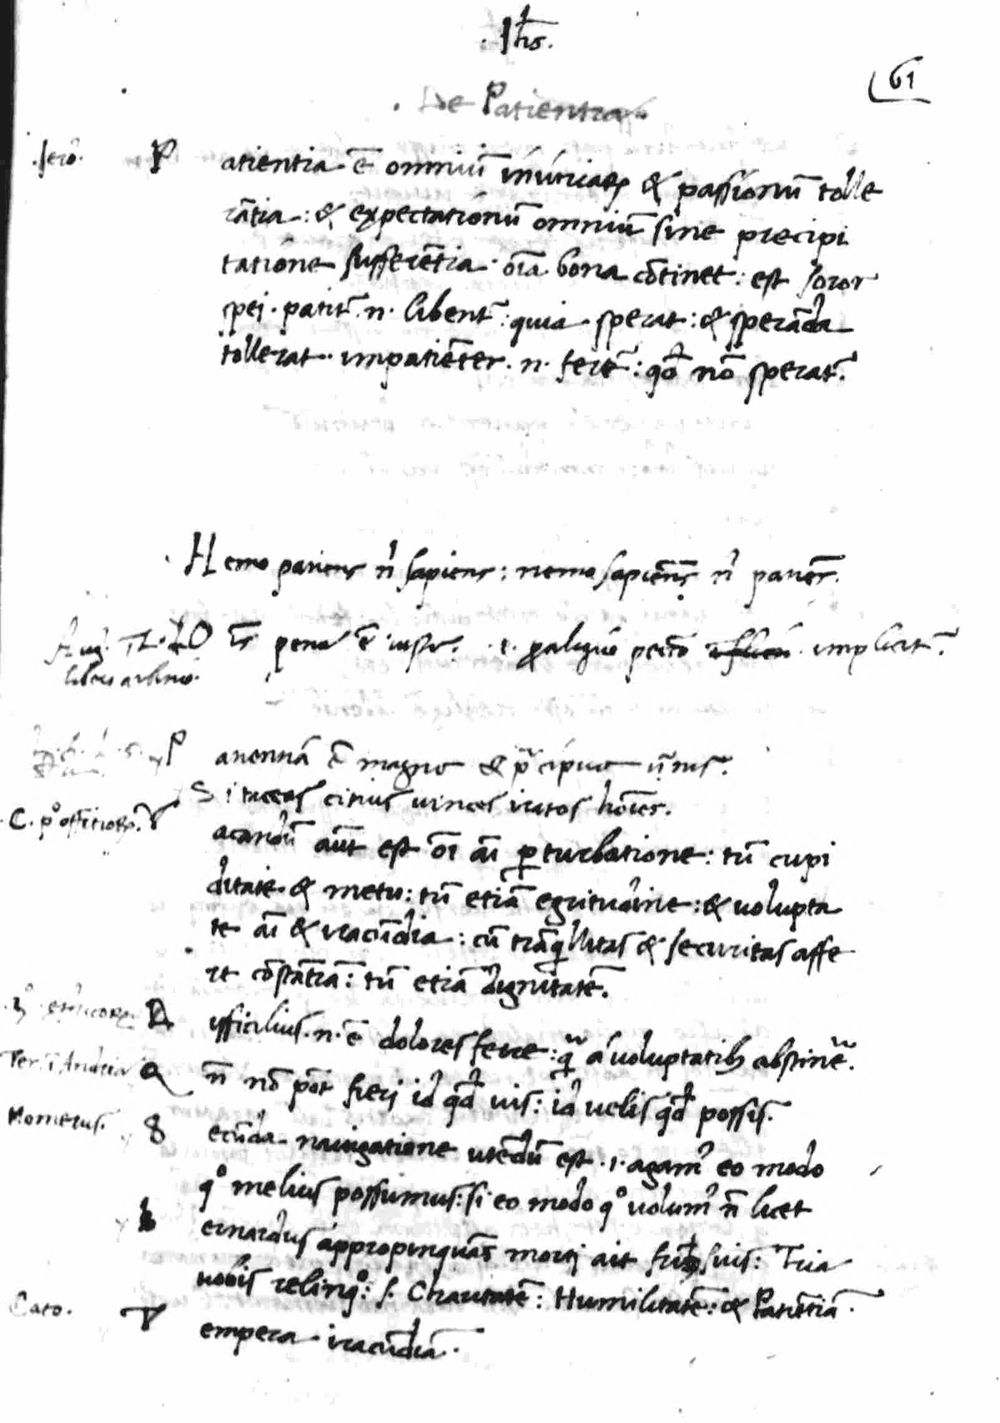 .Ihs.
61
. De Patientia.
.Iero. P atientia ē omniū iniuriarꝝ & passionū tolle
rātia: & expectationū omniū sine precipi
tatione sufferētia. oīa bona cōtinet: est soror
spei. patit̄ .n. libent̄: quia sperat: & sperāda
tollerat. impatiēter .n. fert̄: qđ nō sperat̄.
. Nemo patiens n̄ sapiens: nemo sapiens n̄ patiens.
Aug. pena ē iusta. implicit̄.
libero arbitrio.
P atientia ē magna & p̄cipua
Si taceas citius uinces iratos hoīes.
C. p° officiorꝝ. V acandū aūt est oī aī ꝑturbatione: tū cupi
ditate & metu: tū etiā egritudine: & uolupta
te aī & iracūdia: cū trāqllitas & securitas affe
rt cōstātiā: tū etiā dignitatē.
3° ethicorꝝ. D ifficilius .n. ē dolores ferre: q̄ a uoluptatibꝫ abstinē.
Ter. ī Andria Q n̄ nō pōt fieri id qđ uis: id uelis qđ possis.
Homerus. S ecūda nauigatione utēdū est .i. agam' eo modo
q° melius possumus: si eo modo q° uolum' n̄ licet
B ernardus appropinquās morti ait frībꝫ suis: Tria
uobis relinq°: s. Charitatē: Humilitatē: & Patiētiā.
Cato. T empera iracūdiā.